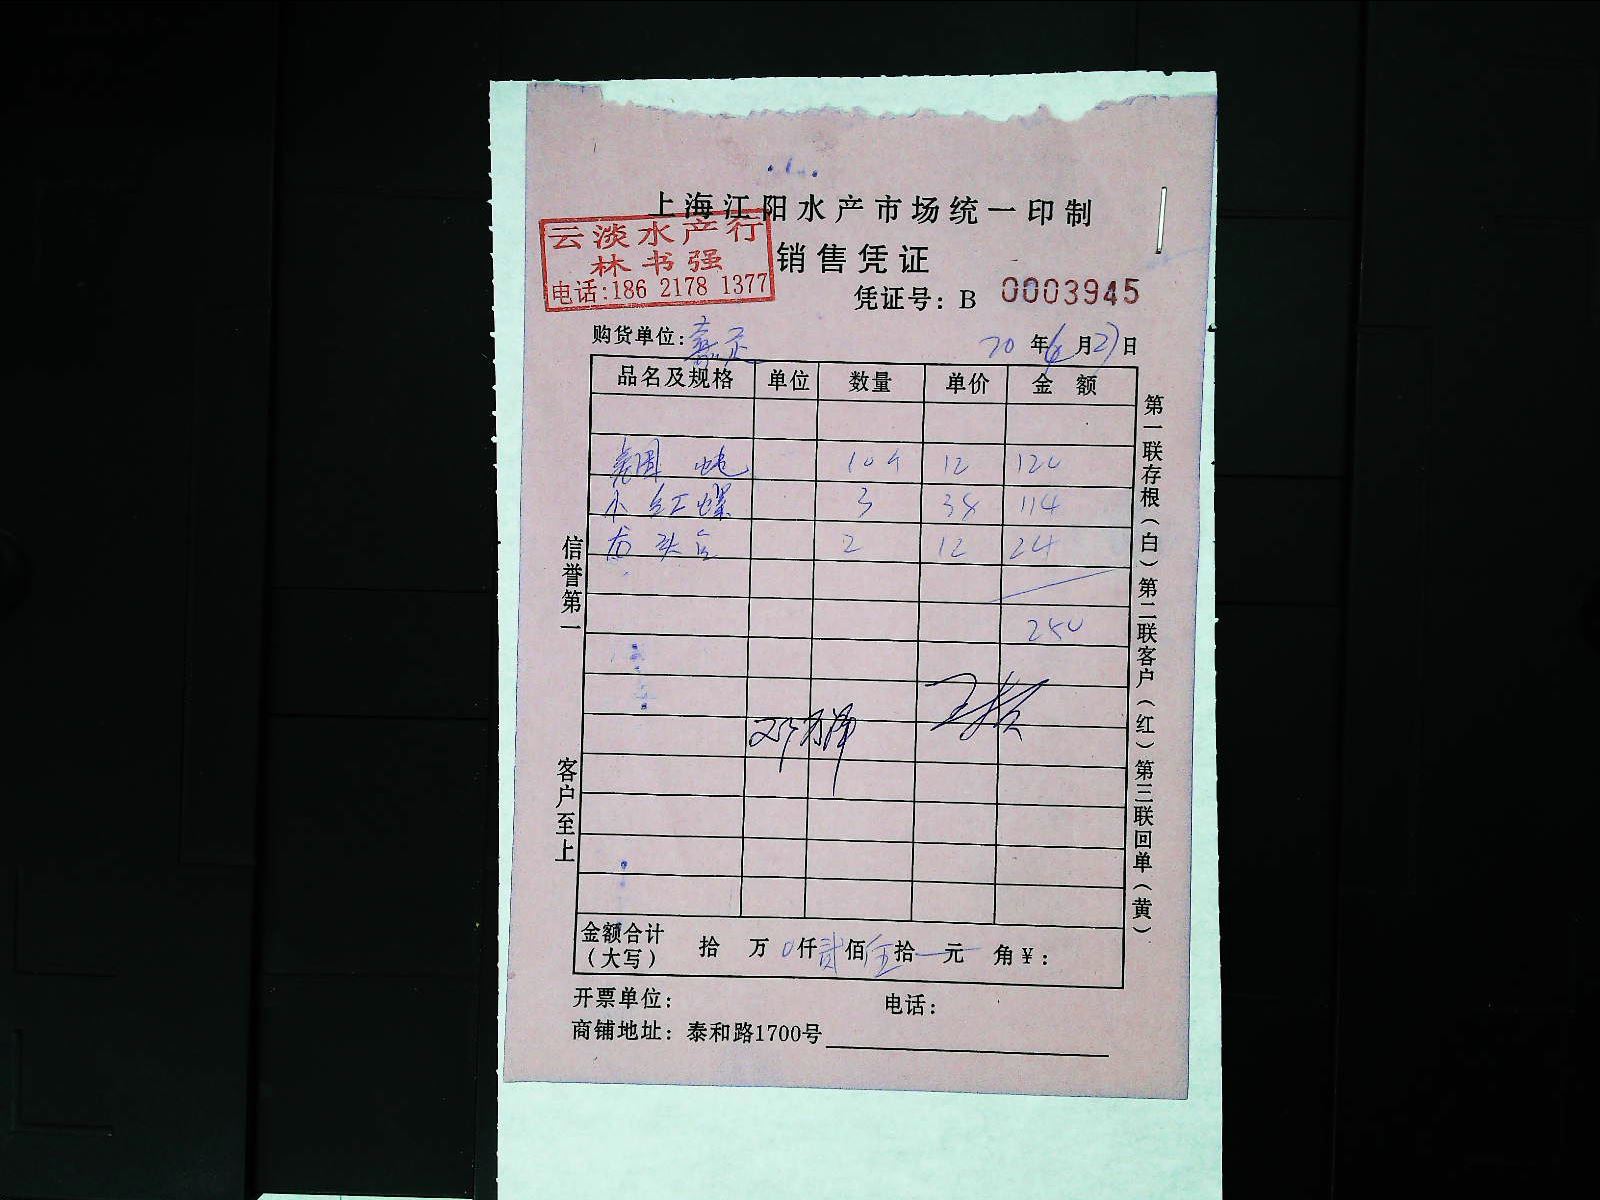 上海江阳水产市场统一印制
云淡水产行
林书强
电话:186 2178 1377
销售凭证
凭证号: B 0003945
购货单位:
20 年 6 月 27 日
品名及规格 单位 数量 单价 金额
10个 12 120
小红螺 3 38 114
龙头 2 12 24
250
金额合计(大写) 拾 万 0 仟 贰 佰 伍 拾 元 角 ¥:
开票单位: 电话:
商铺地址: 泰和路1700号
信誉第一
客户至上
第一联存根(白)第二联客户(红)第三联回单(黄)